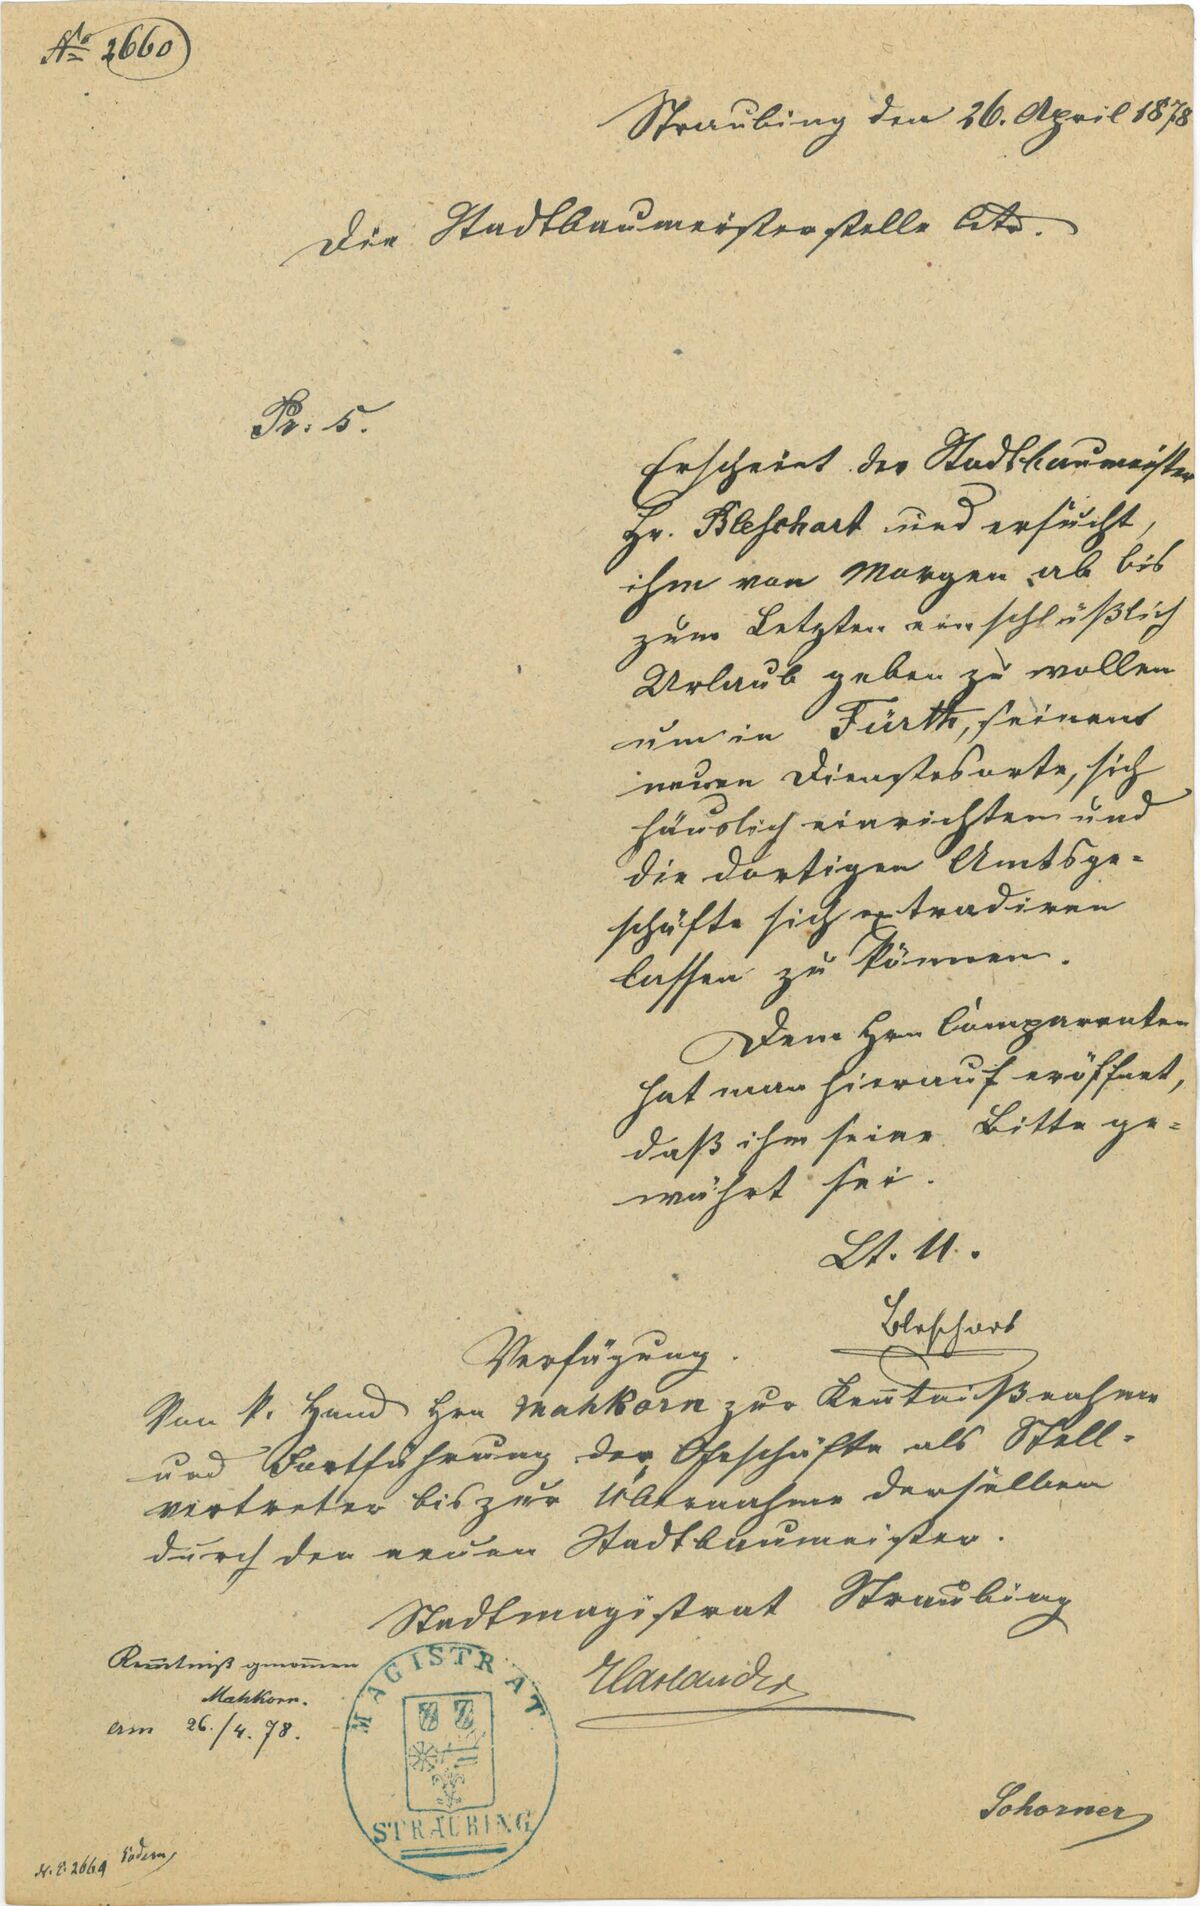 No 2660
Straubing den 26. April 1878
Die Stadtbaumeisterstelle btr.
Pr. 5.
Erscheint der Stadtbaumeister
Hr. Bleschart und ersucht,
ihm von Morgen ab bis
zum Letzten einschlüßlich
Urlaub geben zu wollen
um in Fürth, seinem
neuen Dienstesorte, sich
häuslich einrichten und
die dortigen Amtsge-
schäfte sich extradiren
lassen zu können.
Dem Hrn Comparenten
hat man hierauf eröffnet,
daß ihm seine Bitte ge-
währt sei.
Lt. U.
Bleschart
Verfügung.
Von k. Hand Hrn Mahkorn zur Kenntnißnahme
und Fortführung der Geschäfte als Stell-
vertreter bis zur Übernahme derselben
durch den neuen Stadtbaumeister.
Stadtmagistrat Straubing
Harlander
Kenntniß genommen
Mahkorn.
am 26./4. 78.
MAGISTRAT
STRAUBING
Schorner
N. E. 2664